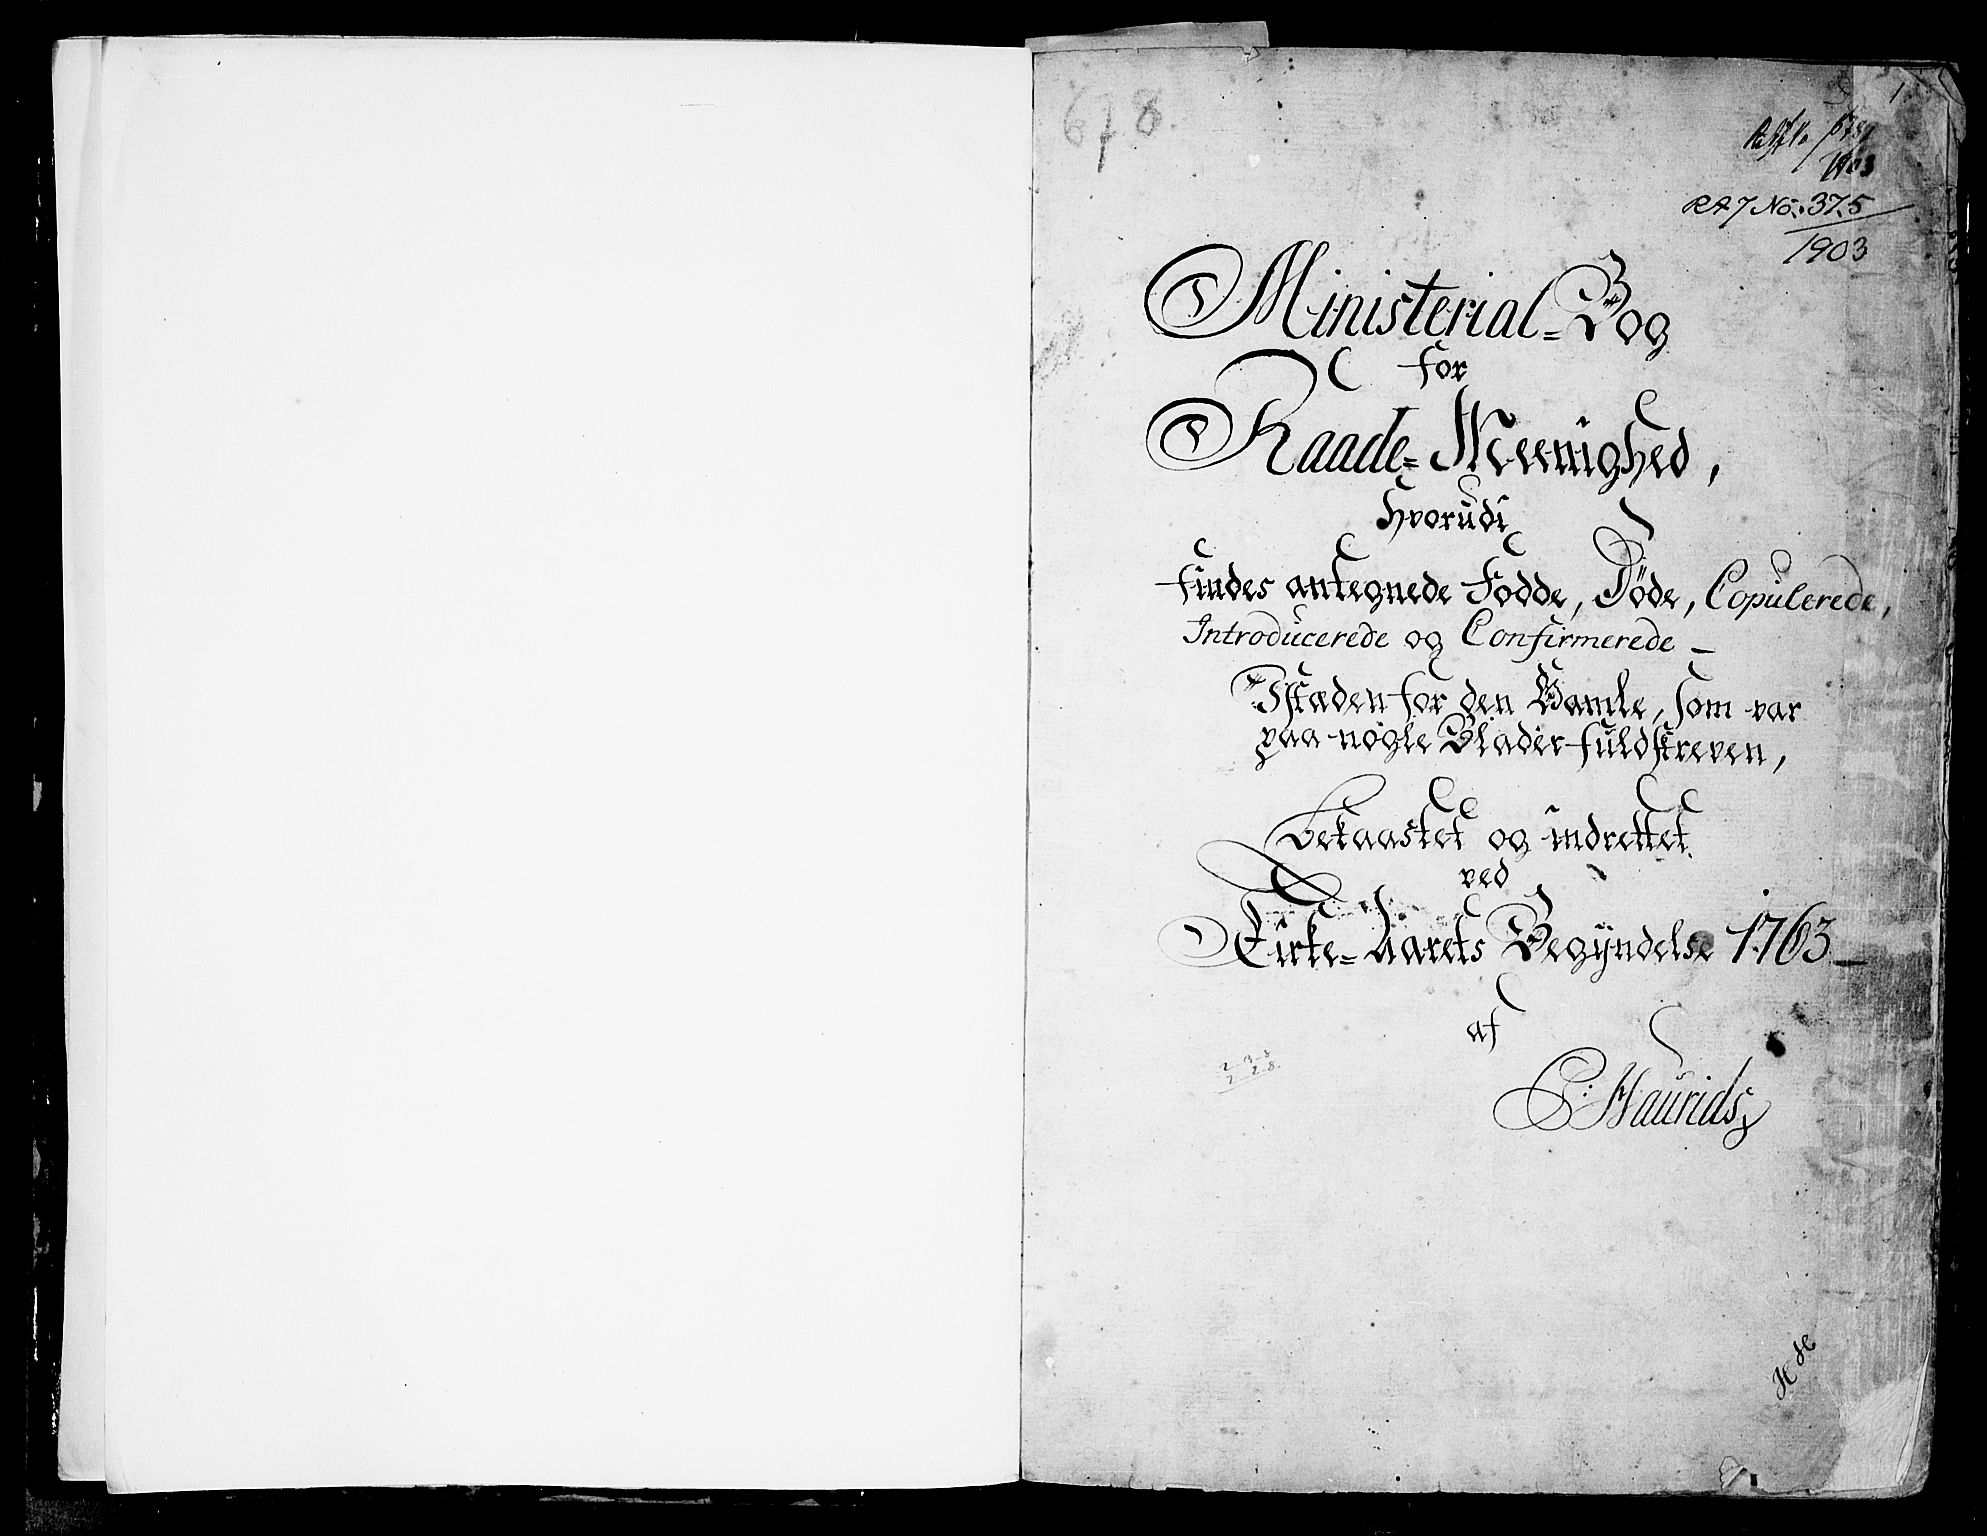 678
1
1903
RA7 No. 375
1903
Ministerial=Bog
for
Raade=Meenighed,
hvorudi
findes antegnede Fødde, Døde, Copulerede,
Introducerede og Confirmerede _
Istæden for den Gamle, som var
paa nogle Blader fuldskreven,
bekaastet og indrettet
ved
Kirke=Aarets Begÿndelse 1763 _
af
C: Haurids